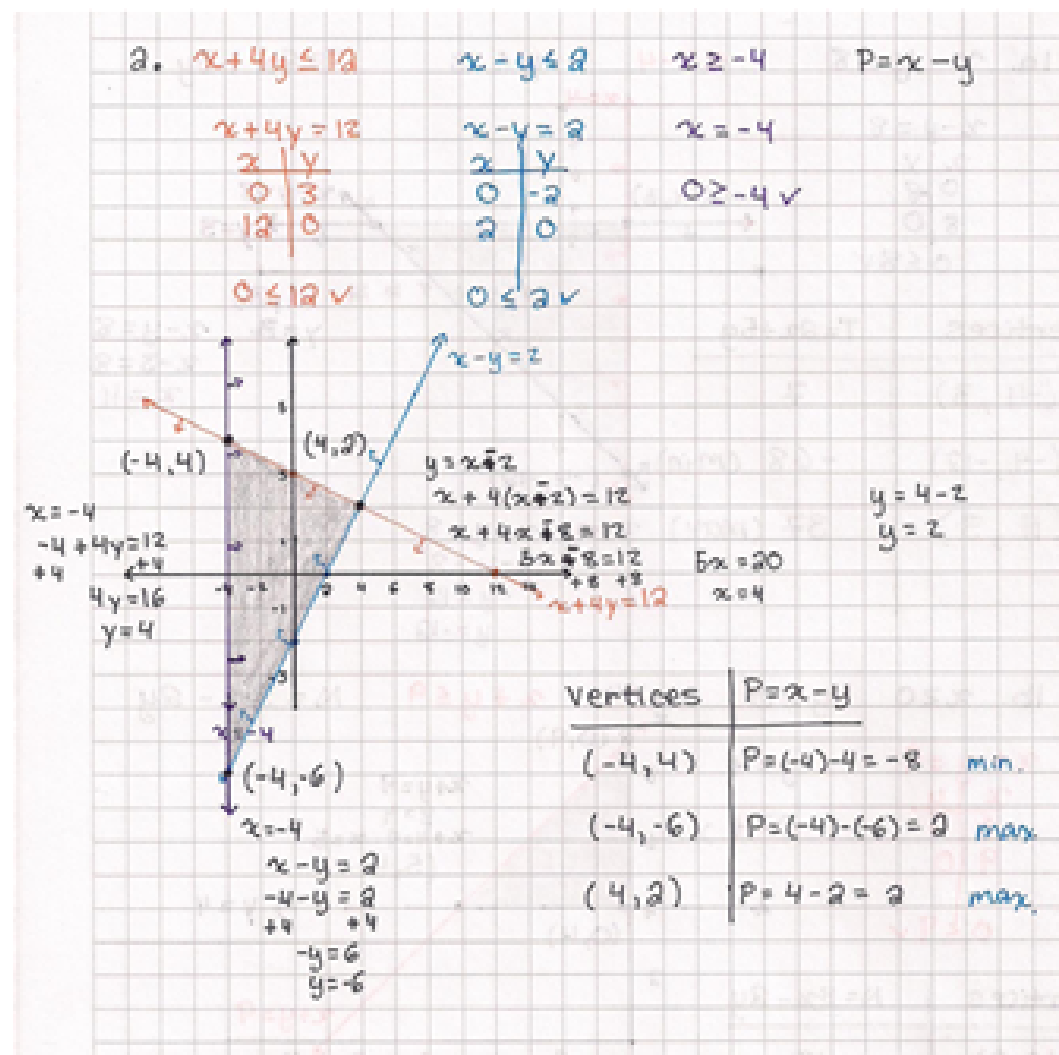 2. x+4y ≤ 12   x-y ≤ 2   x ≥ -4   P=x-y
x+4y=12   x-y=2   x=-4
x | y   x | y
0 | 3   0 | -2   0 ≥ -4 ✓
12 | 0   2 | 0
0 ≤ 12 ✓   0 ≤ 2 ✓
x-y=2
(-4,4)   (4,2)
y=x-2
x+4(x-2)=12
x+4x-8=12
5x-8=12
+8 +8
5x=20
x=4
y=4-2
y=2
x=-4
-4+4y=12
+4 +4
4y=16
y=4
-4 -2 2 4 6 8 10 12
-1
-3
x+4y=12
x=-4
(-4,-6)
x=-4
x-y=2
-4-y=2
+4 +4
-y=6
y=-6
vertices | P=x-y
(-4,4) | P=(-4)-4=-8 min.
(-4,-6) | P=(-4)-(-6)=2 max
(4,2) | P=4-2=2 max.